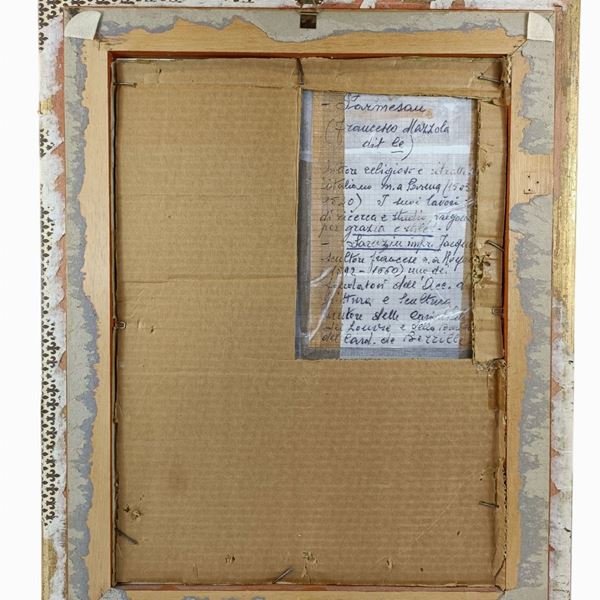 - Parmesan
(Francesco Mazzola
dit le)
pittore religioso e ritratti
italiano n. a Parma (1503
1540) I suoi lavori
di ricerca e studio,
per grazia e stile -
- Sarazin Jacques
scultore francese n. a Noyon
(1592 - 1660) uno dei
fondatori dell'Acc.
pittura e scultura
autore delle cariatidi
del Louvre e della tomba
del Card. de Berulle